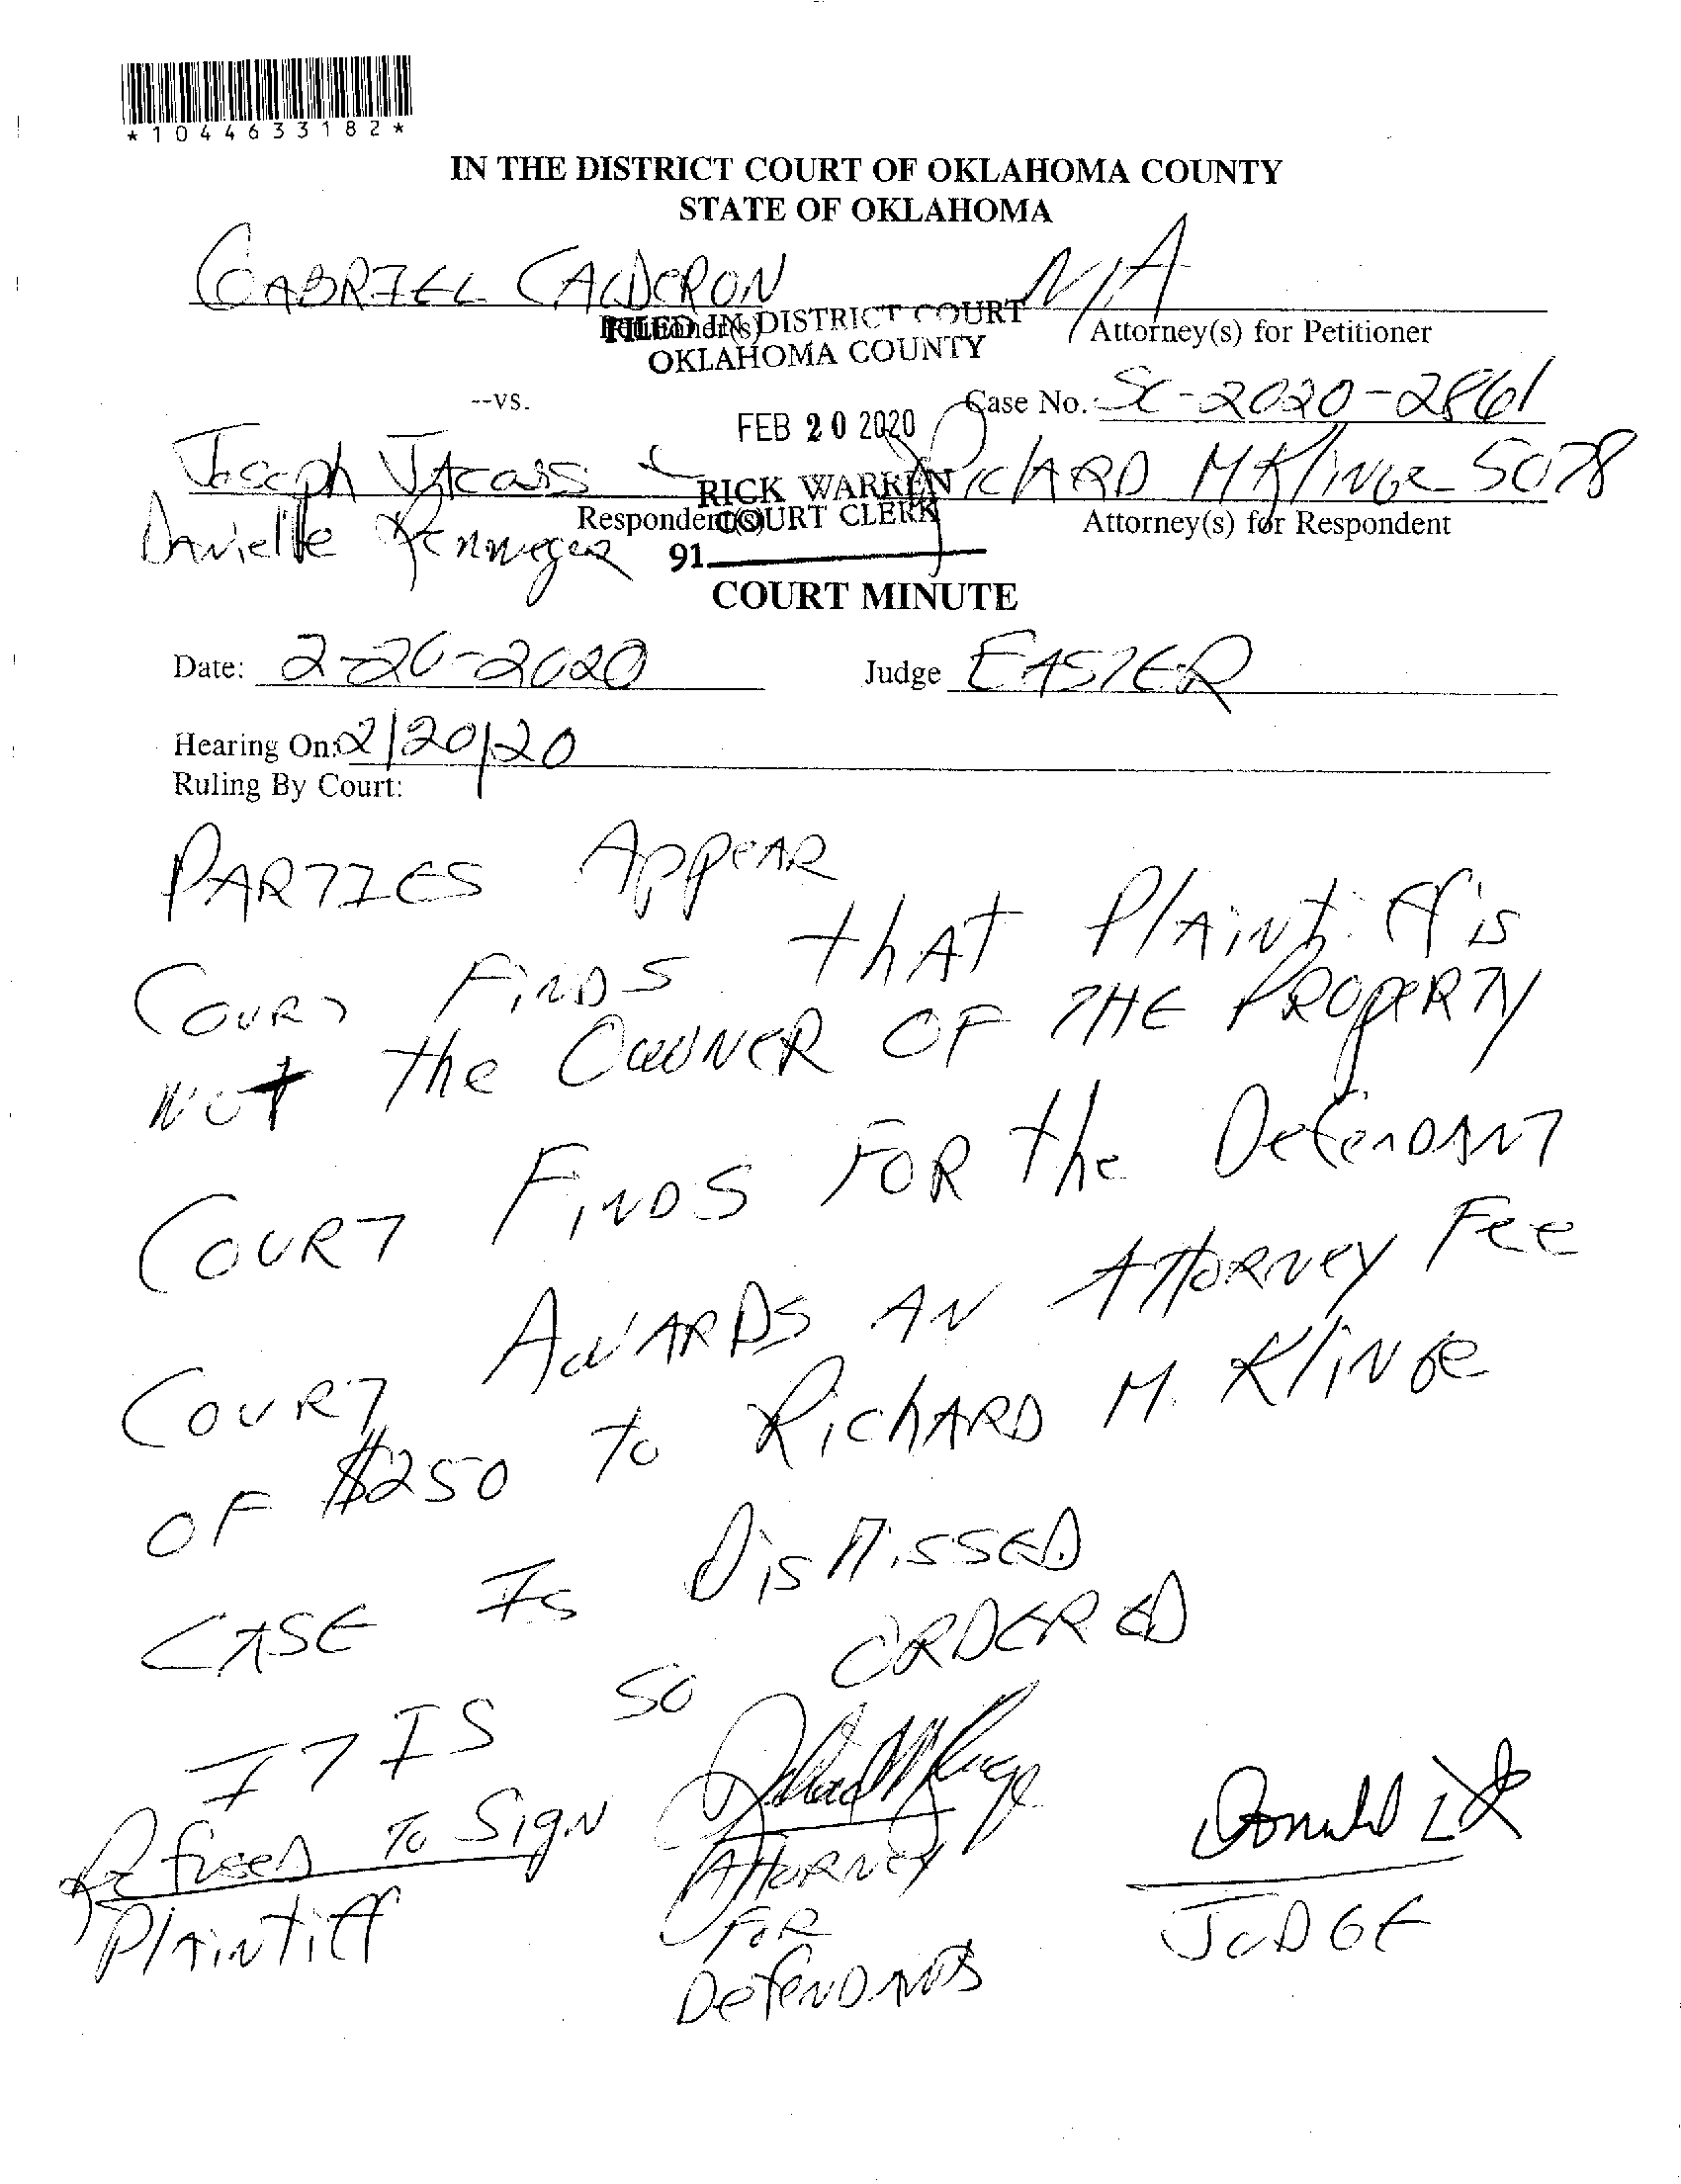 *1044633182*
IN THE DISTRICT COURT OF OKLAHOMA COUNTY
STATE OF OKLAHOMA
GABRIEL CALDERON N/A
Petitioner(s) Attorney(s) for Petitioner
FILED IN DISTRICT COURT
OKLAHOMA COUNTY
--vs.
FEB 20 2020
Case No. SC-2020-2861
Joseph &
RICHARD M KLINGE 5078
RICK WARREN
COURT CLERK
Respondent(s) Attorney(s) for Respondent
Danielle
91
COURT MINUTE
Date: 2-20-2020 Judge EASTER
Hearing On: 2/20/20
Ruling By Court:
PARTIES APPEAR
COURT FINDS thAT PlAintiff is
Not the OWNER OF THE PROPERTY
COURT FINDS FOR the DefenDANT
COURT AWARDS AN ATTORNEY Fee
OF $250 to RichARD M. KliNGe
CASE IS DisMissED
IT IS SO ORDERED
Refused To Sign
Plaintiff
ATTORNEY
FOR
DefenDANTS
JUDGE